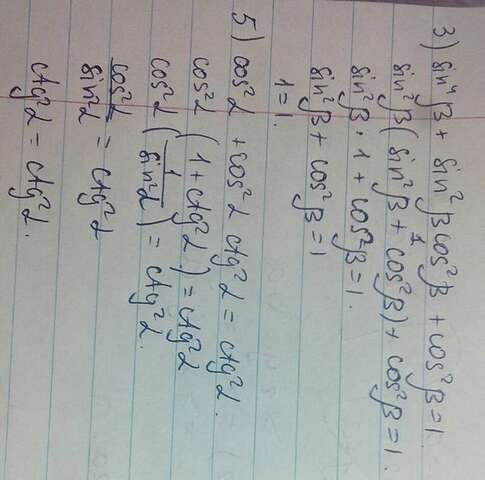 3) sin⁴β + sin²β cos²β + cos²β = 1.
sin²β (sin²β + cos²β) + cos²β = 1.
1
sin²β · 1 + cos²β = 1.
sin²β + cos²β = 1
1 = 1.
5) cos²α + cos²α ctg²α = ctg²α.
cos²α (1 + ctg²α) = ctg²α
cos²α (1/sin²α) = ctg²α.
cos²α/sin²α = ctg²α
ctg²α = ctg²α.